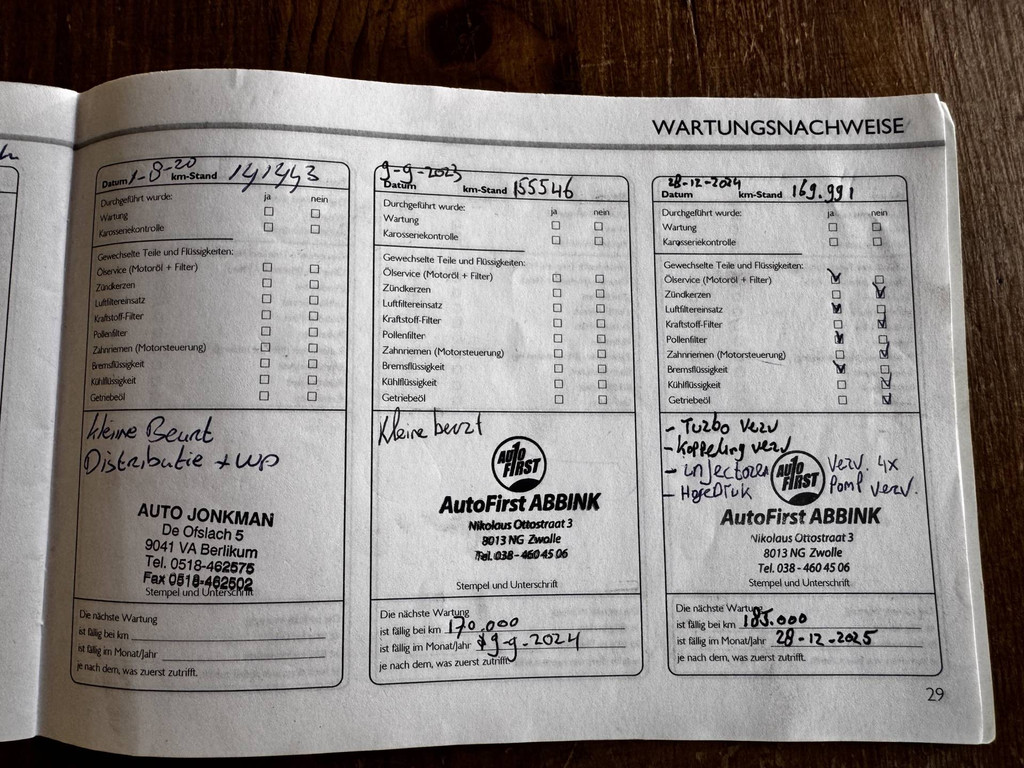 WARTUNGSNACHWEISE
Datum 1-8-20 km-Stand 141443
Durchgeführt wurde: ja nein
Wartung
Karosseriekontrolle
Gewechselte Teile und Flüssigkeiten:
Ölservice (Motoröl + Filter)
Zündkerzen
Luftfiltereinsatz
Kraftstoff-Filter
Pollenfilter
Zahnriemen (Motorsteuerung)
Bremsflüssigkeit
Kühlflüssigkeit
Getriebeöl
kleine Beurt
Distributie + WP
AUTO JONKMAN
De Ofslach 5
9041 VA Berlikum
Tel. 0518-462575
Fax 0518-462502
Stempel und Unterschrift
Die nächste Wartung
ist fällig bei km
ist fällig im Monat/Jahr
je nach dem, was zuerst zutrifft.
9-9-2023
Datum km-Stand 155546
Durchgeführt wurde: ja nein
Wartung
Karosseriekontrolle
Gewechselte Teile und Flüssigkeiten:
Ölservice (Motoröl + Filter)
Zündkerzen
Luftfiltereinsatz
Kraftstoff-Filter
Pollenfilter
Zahnriemen (Motorsteuerung)
Bremsflüssigkeit
Kühlflüssigkeit
Getriebeöl
Kleine beurt
AUTO
FIRST
AutoFirst ABBINK
Nikolaus Ottostraat 3
8013 NG Zwolle
Tel. 038 - 460 45 06
Stempel und Unterschrift
Die nächste Wartung
ist fällig bei km 170.000
ist fällig im Monat/Jahr 9-9-2024
je nach dem, was zuerst zutrifft.
28-12-2024
Datum km-Stand 169.991
Durchgeführt wurde: ja nein
Wartung
Karosseriekontrolle
Gewechselte Teile und Flüssigkeiten:
Ölservice (Motoröl + Filter)
Zündkerzen
Luftfiltereinsatz
Kraftstoff-Filter
Pollenfilter
Zahnriemen (Motorsteuerung)
Bremsflüssigkeit
Kühlflüssigkeit
Getriebeöl
- Turbo verv
- Koppeling verv
- injectoren verv. 4x
- HogeDruk Pomp verv.
AUTO
FIRST
AutoFirst ABBINK
Nikolaus Ottostraat 3
8013 NG Zwolle
Tel. 038 - 460 45 06
Stempel und Unterschrift
Die nächste Wartung
ist fällig bei km 185.000
ist fällig im Monat/Jahr 28-12-2025
je nach dem, was zuerst zutrifft.
29